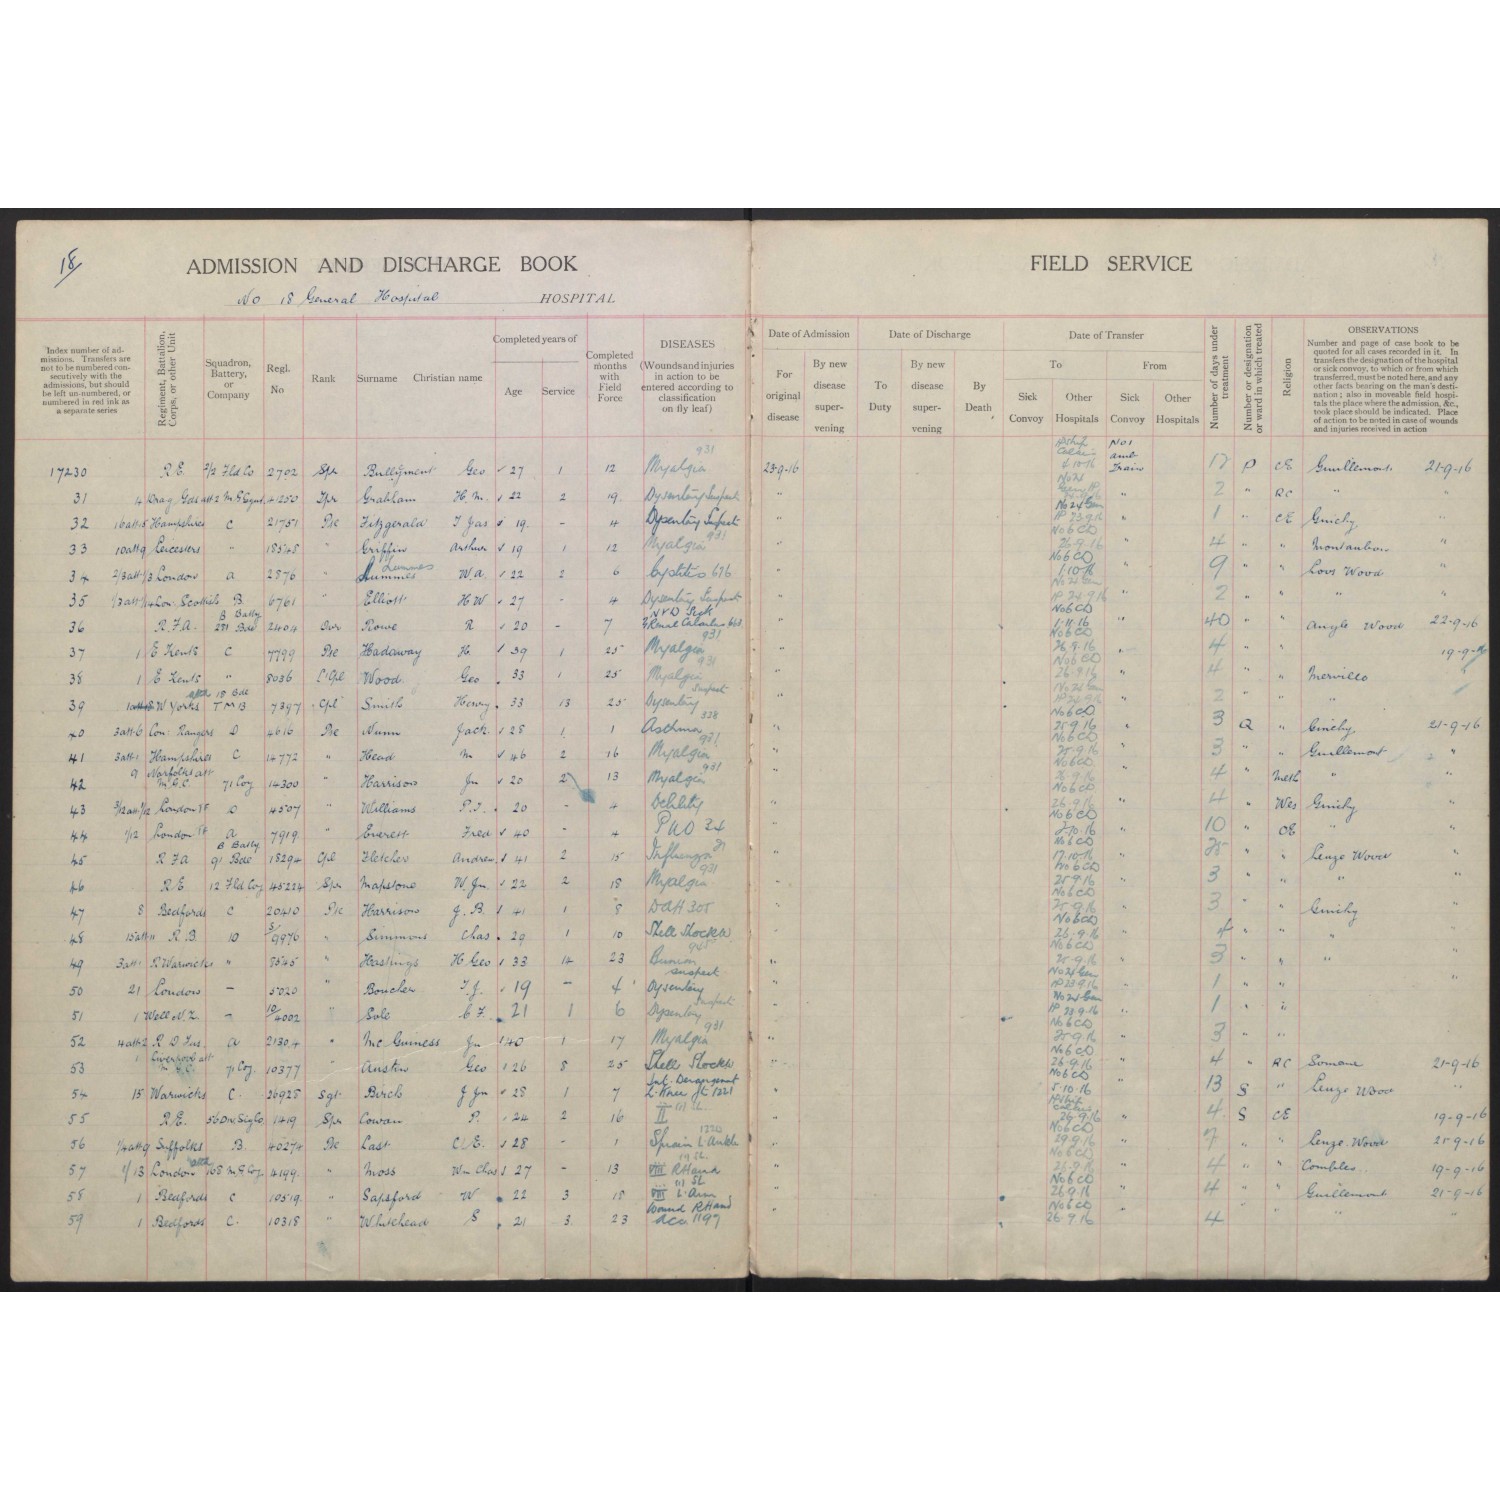 18/
ADMISSION AND DISCHARGE BOOK
No 18 General Hospital HOSPITAL
FIELD SERVICE
Index number of admissions. Transfers are not to be numbered consecutively with the admissions, but should be left un-numbered, or numbered in red ink as a separate series
Regiment, Battalion, Corps, or other Unit
Squadron, Battery, or Company
Regl. No
Rank
Surname Christian name
Completed years of
Age Service
Completed months with Field Force
DISEASES
(Wounds and injuries in action to be entered according to classification on fly leaf)
Date of Admission
For original disease
By new disease supervening
Date of Discharge
To Duty
By new disease supervening
By Death
Date of Transfer
To From
Sick Convoy
Other Hospitals
Sick Convoy
Other Hospitals
Number of days under treatment
Number or designation or ward in which treated
Religion
OBSERVATIONS
Number and page of case book to be quoted for all cases recorded in it. In transfers the designation of the hospital or sick convoy, to which or from which transferred, must be noted here, and any other facts bearing on the man's destination; also in moveable field hospitals the place where the admission, &c., took place should be indicated. Place of action to be noted in case of wounds and injuries received in action
17230 R.E. 2/2 Fld Co 2702 Spr Bullyment Geo 27 1 12 Myalgia 931 23-9-16 No 1 Amb Train 12 P CE Guillemont 21-9-16
31 Grabham H.M. 22 2 19 Dysentery Suspect " " 2 " RC "
32 16 att 15 Hampshires C 21751 Pte Fitzgerald T Jas 19 - 4 Dysentery Suspect " No 24 Gen 23.9.16 " 1 " CE Ginchy "
33 10 att 9 Leicesters " 18548 " Griffin Arthur 19 1 12 Myalgia 931 " No 6 CD 26-9-16 " 4 " " Montauban "
34 2/3 att 1/3 London A 2876 " Lummes W.A. 22 2 6 Cystitis 676 " No 6 CD 1-10-16 " 9 " " Loos Wood "
35 Lon. Scottish B 6761 " Elliott H W 27 - 4 Dysentery Suspect " 24-9-16 " 2 " " " "
36 R.F.A. B Batty Bde 2404 Dvr Rowe R 20 - 7 Renal Calculus " No 6 CD 1-11-16 " 40 " " Angle Wood 22-9-16
37 1 E Kents C 7799 Pte Hadaway H. 39 1 25 Myalgia 931 " No 6 CD 26.9.16 " 4 " " 19-9-16
38 1 E Kents " 8036 L/Cpl Wood Geo 33 1 25 Myalgia 931 " No 6 CD 26-9-16 " 4 " Merville "
39 W Yorks attd 18 Bde TMB 7397 Cpl Smith Henry 33 13 25 Dysentery Suspect " No 24 Gen " 2 " " "
40 3 att 6 Con. Rangers D 4616 Pte Nunn Jack 28 1 1 Asthma 328 " No 6 CD 25.9.16 " 3 Q " Ginchy 21-9-16
41 3 att 1 Hampshires C 14772 " Head M 46 2 16 Myalgia 931 " No 6 CD 25-9-16 " 3 " " Guillemont "
42 9 Norfolks att M.G.C. 71 Coy 14300 " Harrison Jn 20 2 13 Myalgia 931 " No 6 CD 26-9-16 " 4 " Meth " "
43 London TF D 4507 " Williams P.J. 20 - 4 Debility " No 6 CD 26-9-16 " 4 " Wes Ginchy "
44 1/12 London TF A 7919 " Everett Fred 40 - 4 PUO 24 " No 6 CD 2-10-16 " 10 " CE " "
45 R F A B Batty 91 Bde 18294 Cpl Fletcher Andrew 41 2 15 Influenza " No 6 CD 17-10-16 " 25 " " Leuze Wood "
46 R E 12 Fld Coy 45224 Spr Mapstone W. Jn 22 2 18 Myalgia 931 " No 6 CD 25-9-16 " 3 " " " "
47 8 Bedfords C 20410 Pte Harrison J. B. 41 1 8 DAH 305 " No 6 CD 25-9-16 " 3 " " Ginchy "
48 15 att 11 R. B. 10 S/9976 " Simmons Chas 29 1 10 Shell Shock W " No 6 CD 26-9-16 " 4 " " " "
49 3 att 1 R Warwicks " 8545 " Hastings H Geo 33 14 23 Bunion " No 6 CD 25-9-16 " 3 " " "
50 21 London - 5020 " Boucher T. J. 19 - 4 Dysentery suspect " No 24 Gen 23-9-16 " 1 " " "
51 1 Well N.Z. - 10/4002 " Sole C F. 21 1 6 Dysentery Suspect " No 24 Gen 23-9-16 " 1 " "
52 4 att 2 R D Fus. A 21304 " Mc Guiness Jn 40 1 17 Myalgia 931 " No 6 CD 25-9-16 " 3 " "
53 1 Liverpool att M.G.C. 71 Coy. 10377 " Austin Geo 26 8 25 Shell Shock W " No 6 CD 26-9-16 " 4 " RC Somme 21-9-16
54 15 Warwicks C. 26928 Sgt. Birch J Jn 28 1 7 Int. Derangement L. Knee Jt 1221 " No 6 CD 5-10-16 " 13 S " Leuze Wood "
55 R.E. 56 Div Sig Co. 1419 Spr Cowan P. 24 2 16 II " 26-9-16 " 4 S CE 19-9-16
56 1/4 att 9 Suffolks B. 40274 Pte Last C/E. 28 - 1 Sprain L. Ankle 1220 " No 6 CD 29.9.16 " 7 " " Leuze Wood 25-9-16
57 1/13 London attd 168 M.G. Coy. 4199 " Moss Wm Chas 27 - 13 VIII R Hand " No 6 CD 26-9-16 " 4 " " Combles 19-9-16
58 1 Bedfords C 10519 " Sapsford W 22 3 18 VIII L. Arm " No 6 CD 26.9.16 " 4 " " Guillemont 21-9-16
59 1 Bedfords C. 10318 " Whitehead S 21 3 23 Wound R Hand Acc 1197 " No 6 CD 26.9.16 " 4 " " " "